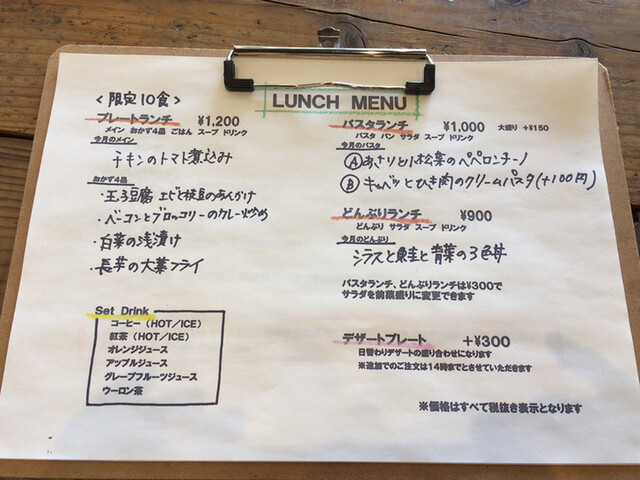 LUNCH MENU
＜限定10食＞
プレートランチ ¥1,200
メイン おかず4品 ごはん スープ ドリンク
今月のメイン
チキンのトマト煮込み
おかず4品
・玉子豆腐 エビと枝豆のあんかけ
・ベーコンとブロッコリーのカレー炒め
・白菜の浅漬け
・長芋の大葉フライ
Set Drink
コーヒー（HOT／ICE）
紅茶（HOT／ICE）
オレンジジュース
アップルジュース
グレープフルーツジュース
ウーロン茶
パスタランチ ¥1,000 大盛り +¥150
パスタ パン サラダ スープ ドリンク
今月のパスタ
Ⓐあさりと小松菜のペペロンチーノ
Ⓑキャベツとひき肉のクリームパスタ(+100円)
どんぶりランチ ¥900
どんぶり サラダ スープ ドリンク
今月のどんぶり
シラスと鮭と青菜の3色丼
パスタランチ、どんぶりランチは¥300で
サラダを前菜盛りに変更できます
デザートプレート +¥300
日替わりデザートの盛り合わせになります
※追加でのご注文は14時までとさせていただきます
※価格はすべて税抜き表示となります